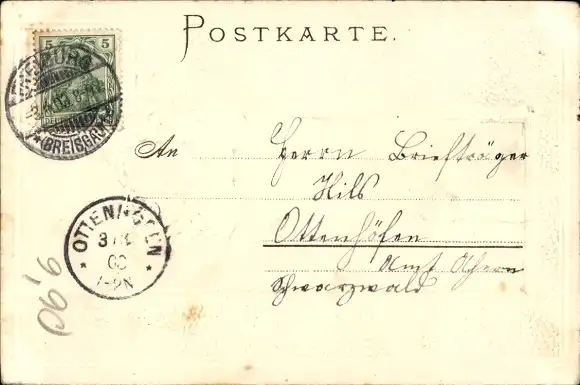 POSTKARTE.
5 5
FREIBURG
(BREISGAU)
An Herrn Briefträger
Hils
Ottenhöfen
Amt Achern
Schwarzwald
OTTENHÖFEN
7-8N